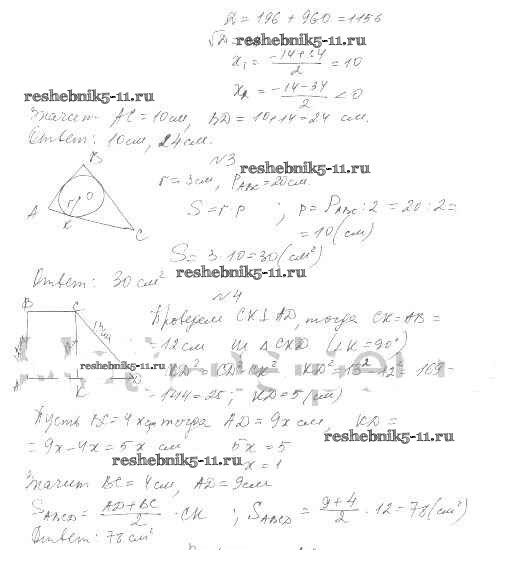 D = 196 + 960 = 1156
reshebnik5-11.ru
x₁ = (-14+34)/2 = 10
x₂ = (-14-34)/2 < 0
reshebnik5-11.ru
Значит AC = 10 см, BD = 10+14 = 24 см.
Ответ: 10 см, 24 см.
N3
reshebnik5-11.ru
B
r = 3 см, P_ABC = 20 см.
A r O
S = r·p ; p = P_ABC : 2 = 20 : 2 =
K C
= 10 (см)
S = 3·10 = 30 (см²)
Ответ: 30 см²
reshebnik5-11.ru
N4
B C
Проведем CK ⊥ AD, тогда CK = AB =
13см
= 12 см Из △CKD (∠K = 90°)
reshebnik5-11.ru
KD² = CD² - CK² KD² = 13² - 12² = 169 -
A K D
- 144 = 25; KD = 5 (см)
Пусть BC = 4x см тогда AD = 9x см, KD =
reshebnik5-11.ru
= 9x - 4x = 5x см 5x = 5
reshebnik5-11.ru
x = 1
Значит BC = 4 см, AD = 9 см
S_ABCD = (AD+BC)/2 · CK ; S_ABCD = (9+4)/2 · 12 = 78 (см²)
Ответ: 78 см²